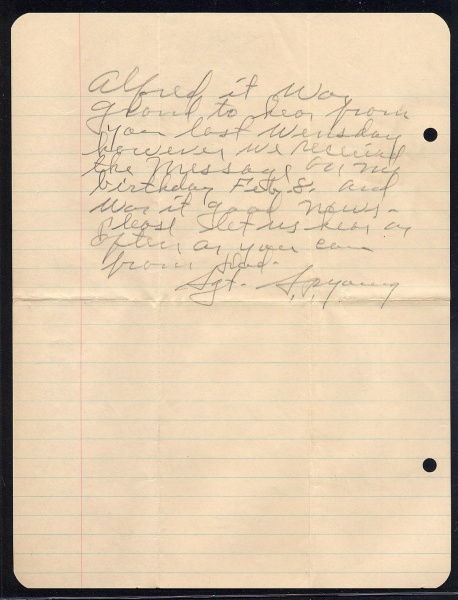 Alfred it was
grand to hear from
you last Wensday
however we received
the message on my
birthday Feb. 8. and
was it good news -
please let us hear as
often as you can
from
Sgt. S.P. Young